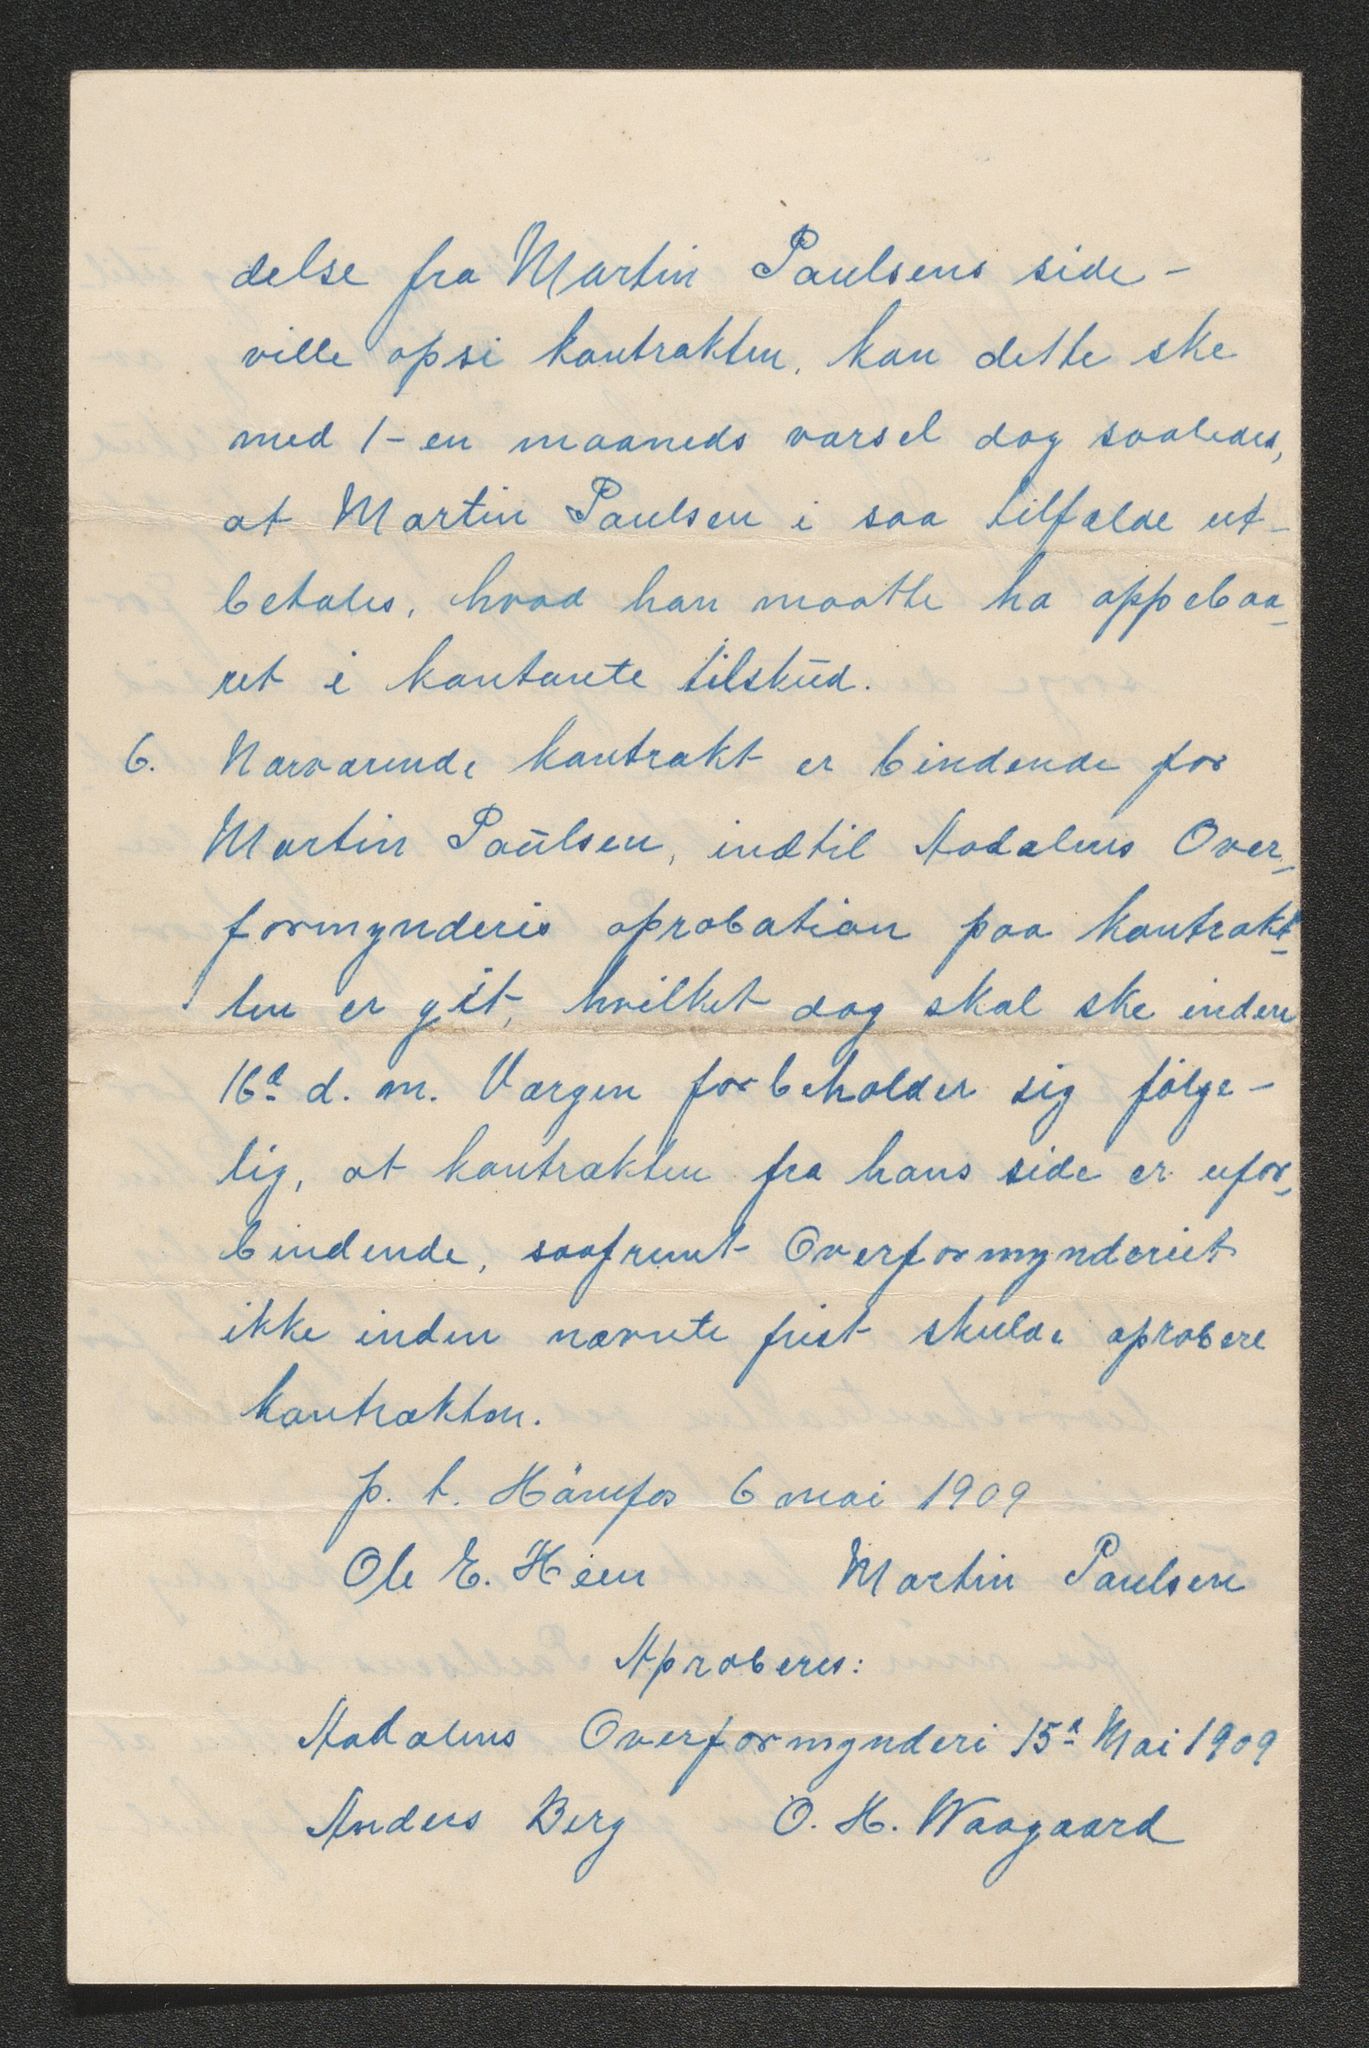 delse fra Martin Paulsens side -
ville opsi kontrakten, kan dette ske
med 1 - en maaneds varsel dog saaledes,
at Martin Paulsen i saa tilfælde ut-
betales, hvad han maatte ha oppebaa-
ret i kontante tilskud.
6. Nærværende kontrakt er bindende for
Martin Paulsen, indtil Aadalens Over-
formynderis aprobation paa kontrakt-
ten er git, hvilket dog skal ske inden
16d d. m. Værgen forbeholder sig følge-
lig, at kontrakten fra hans side er ufor-
bindende, saafremt Overformynderiet
ikke inden nævnte frist skulde aprobere
kontrakten.
p. t. Hønefos 6 mai 1909
Ole E. Heen Martin Paulsen
Aproberes:
Aadalens Overformynderi 15d Mai 1909
Anders Berg O. H. Waagaard